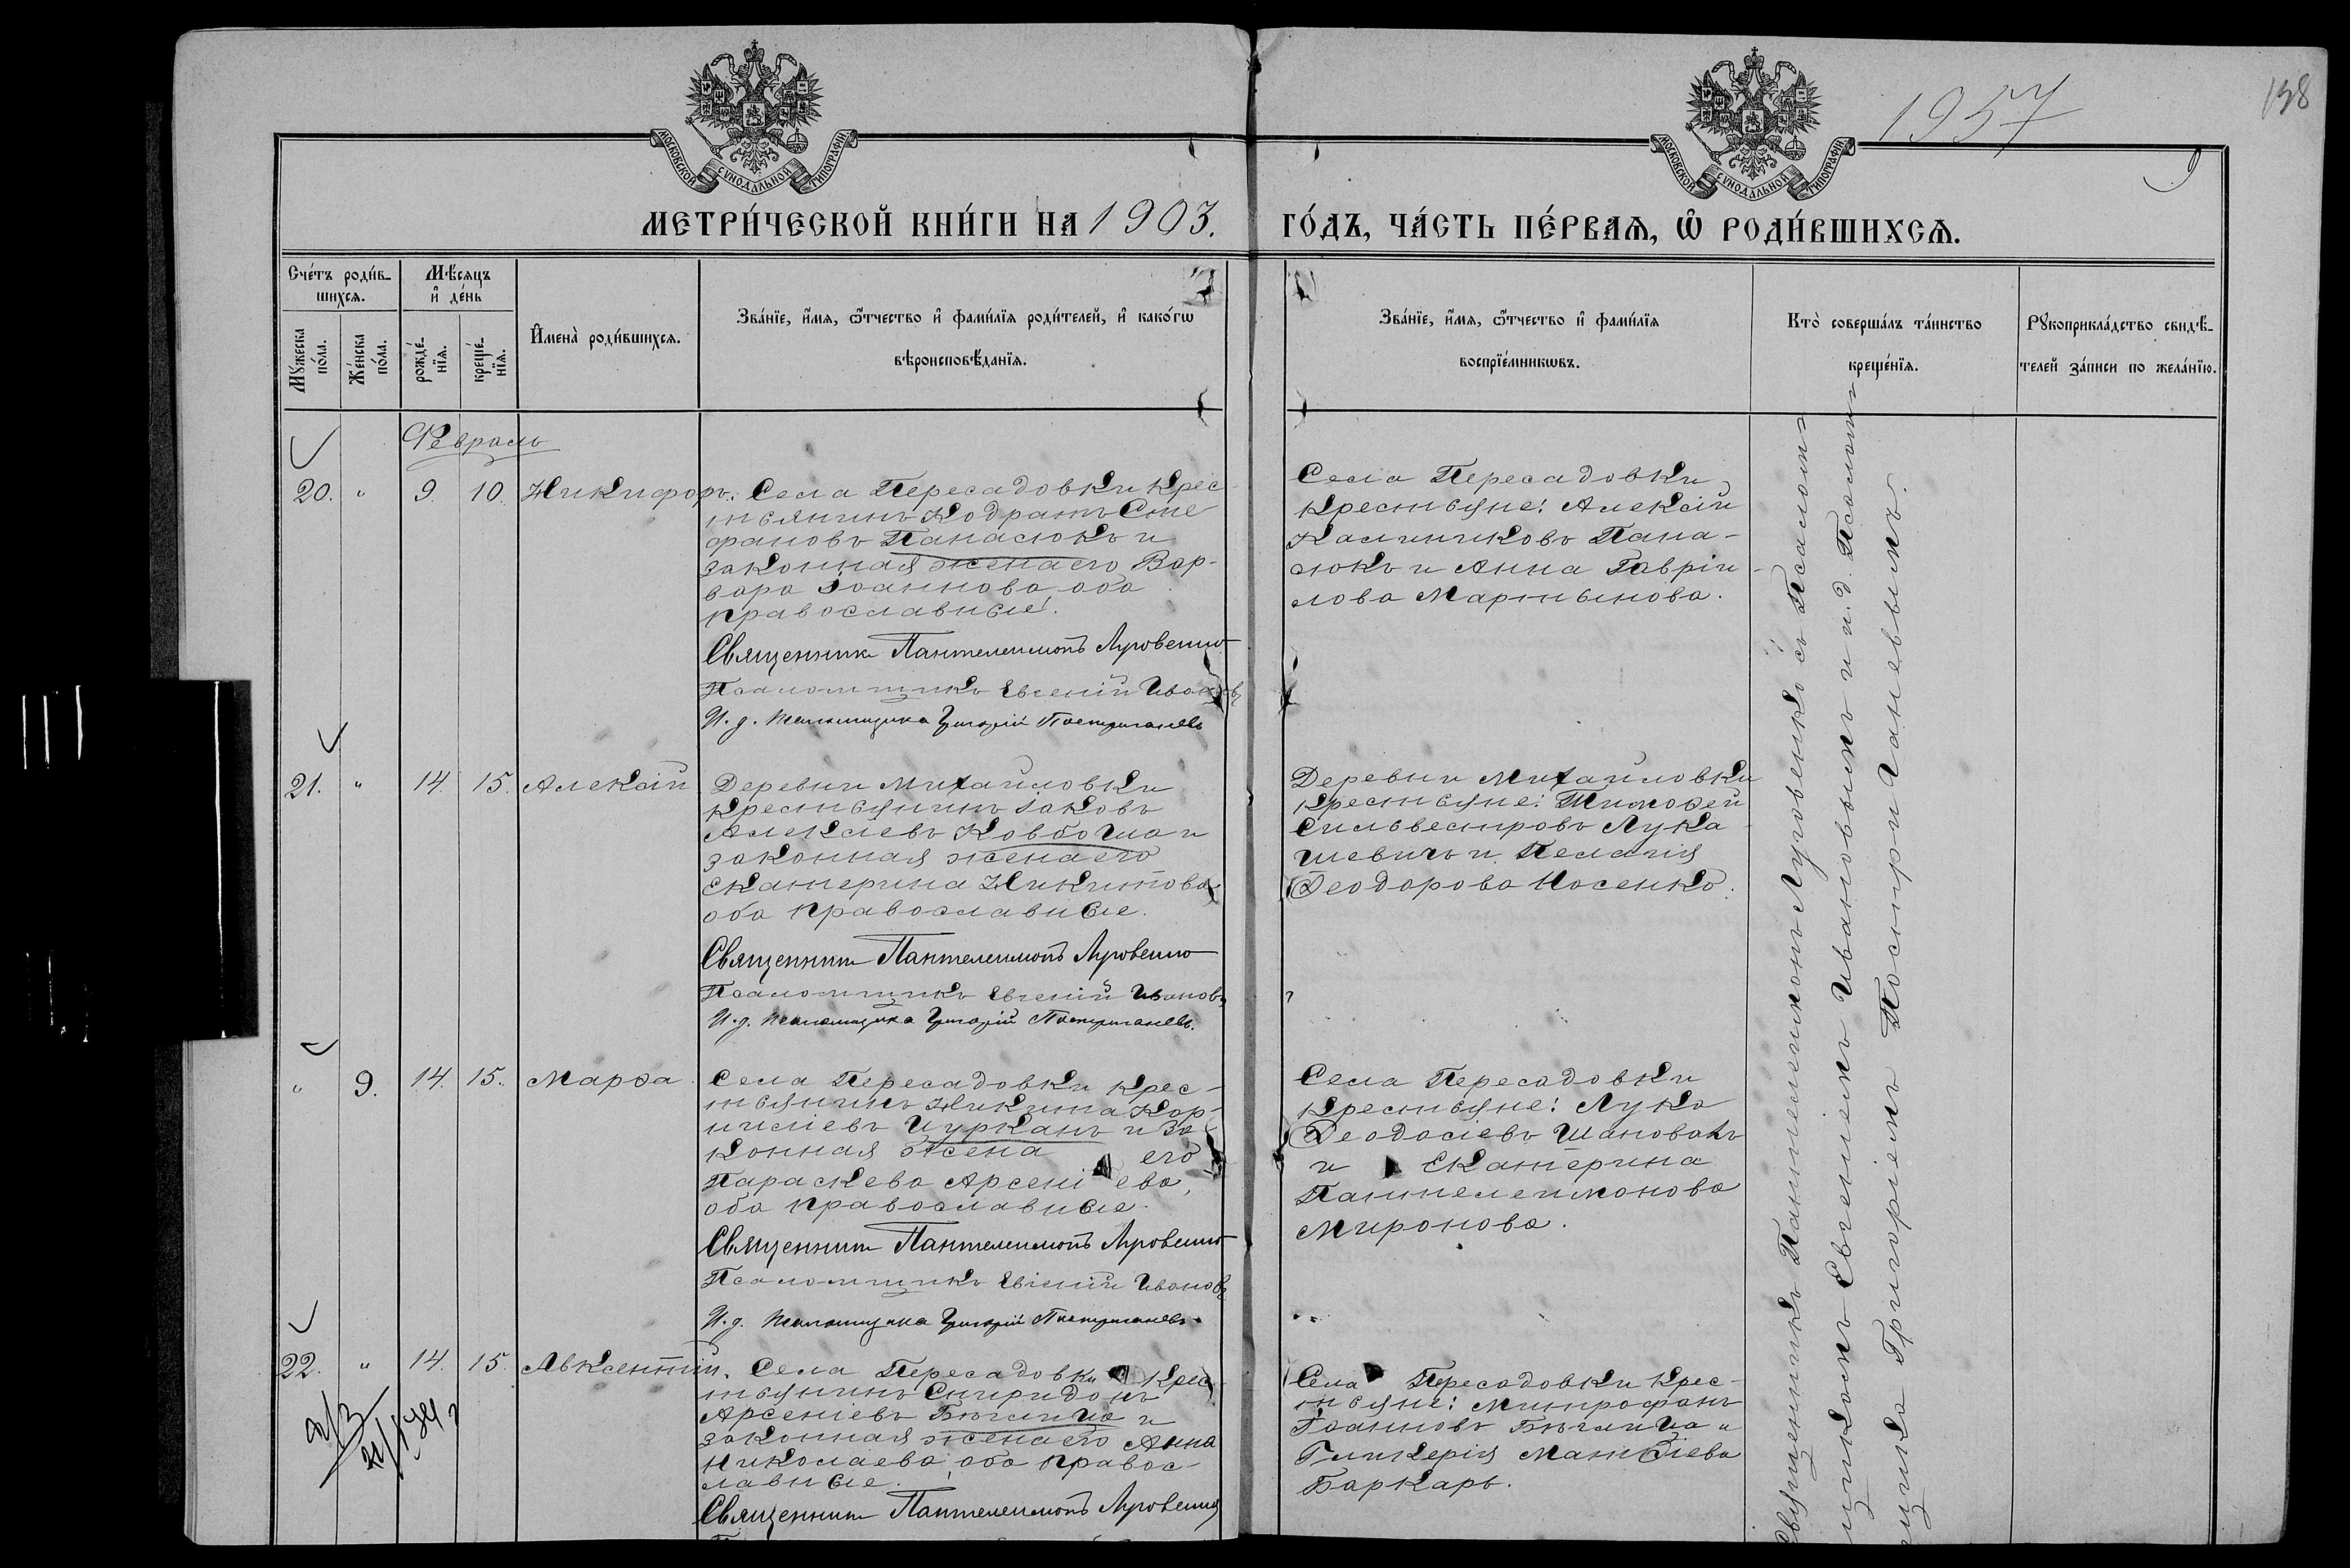 1957
138
9
МОСКОВСКОЙ СѴНОДАЛЬНОЙ ТИПОГРАФІИ
МОСКОВСКОЙ СѴНОДАЛЬНОЙ ТИПОГРАФІИ
МЕТРИ́ЧЕСКОЙ КНИ́ГИ НА 1903. ГО́ДЪ, ЧА́СТЬ ПЕ́РВАѦ, Ѡ҆ РОДИ́ВШИХСѦ.
Сче́тъ роди́в-
шихсѧ.
Мꙋ́жеска по́ла.
Же́нска по́ла.
Мѣ́сѧцъ
и҆ де́нь
рожде́-
нїѧ.
креще́-
нїѧ.
И҆мена̀ роди́вшихсѧ.
Зва́нїе, и҆́мѧ, ѻ҆́тчество и҆ фами́лїѧ роди́телей, и҆ како́гѡ
вѣроисповѣ́данїѧ.
Зва́нїе, и҆́мѧ, ѻ҆́тчество и҆ фами́лїѧ
воспрїе́мникѡвъ.
Кто̀ соверша́лъ та́инство
креще́нїѧ.
Рꙋкоприкла́дство свидѣ́-
телей за́писи по жела́нїю.
Февраль
20. " 9. 10. Никифоръ. Села Пересадовки крес-
тьянинъ Кодратъ Сте
фановъ Панасюкъ и
законная жена его Вар-
вара Іоаннова, оба
православные.
Священник Пантелеимонъ Луговенко
Псаломщикъ Евгеній Ивановъ
И. д. псаломщика Григорій Постриганевъ
Села Пересадовки
крестьяне: Алексій
Калинниковъ Пана-
сюкъ и Анна Гаврiи-
лова Мартынова.
21. " 14. 15. Алексій Деревни Михайловки
крестьянинъ Іаковъ
Алексіевъ Ковбоша и
законная жена его
Екатерина Никитова
оба православные.
Священник Пантелеимонъ Луговенко
Псаломщикъ Евгеній Ивановъ
И. д. псаломщика Григорій Постриганевъ.
Деревни Михайловки
крестьяне: Тимоѳей
Сильвестровъ Лука
шевичъ и Пелагия
Ѳеодорова Носенко.
" 9. 14. 15. Марѳа Села Пересадовки крес-
тьянинъ Никита Кор-
нилiевъ Цурканъ и за
конная жена его
Параскева Арсенiева,
оба православные.
Священник Пантелеимонъ Луговенко
Псаломщикъ Евгеній Ивановъ
И. д. псаломщика Григорій Постриганевъ.
Села Пересадовки
крестьяне: Лука
Ѳеодосіевъ Шаповалъ
и Екатерина
Пантелеимонова
Миронова.
22. " 14. 15. Авксентій. Села Пересадовки крес
тьянинъ Спиридонъ
Арсеніевъ и
законная жена его Анна
Николаева, оба правос-
лавные.
Священник Пантелеимонъ Луговенко
Села Пересадовки крес-
тьяне: Митрофанъ
Іоанновъ и
Гликерія Матѳіева
Баркарь.
Священникъ Пантелеимонъ Луговенко съ Псалом-
щикомъ Евгеніемъ Ивановымъ и и. д. Псалом-
щика Григоріемъ Постриганевымъ.